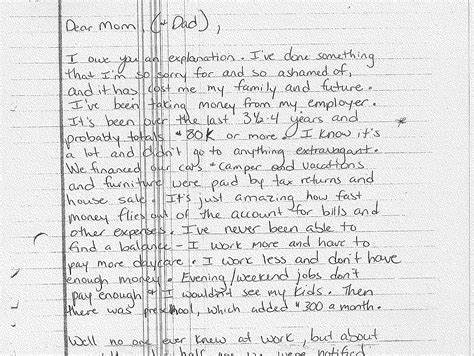 Dear Mom, (+ Dad),
I owe you an explanation. I've done something
that I'm so sorry for and so ashamed of,
and it has cost me my family and future.
I've been taking money from my employer.
It's been over the last 3½-4 years and
probably totals $80K or more. I know it's
a lot and didn't go to anything extravagant.
We financed our cars + camper and vacations
and furniture were paid by tax returns and
house sale. It's just amazing how fast
money flies out of the account for bills and
other expenses. I've never been able to
find a balance - I work more and have to
pay more daycare. I work less and don't have
enough money. Evening/weekend jobs don't
pay enough + I wouldn't see my kids. Then
there was preschool, which added $300 a month.
Well no one ever knew at work, but about
half ago we were notified